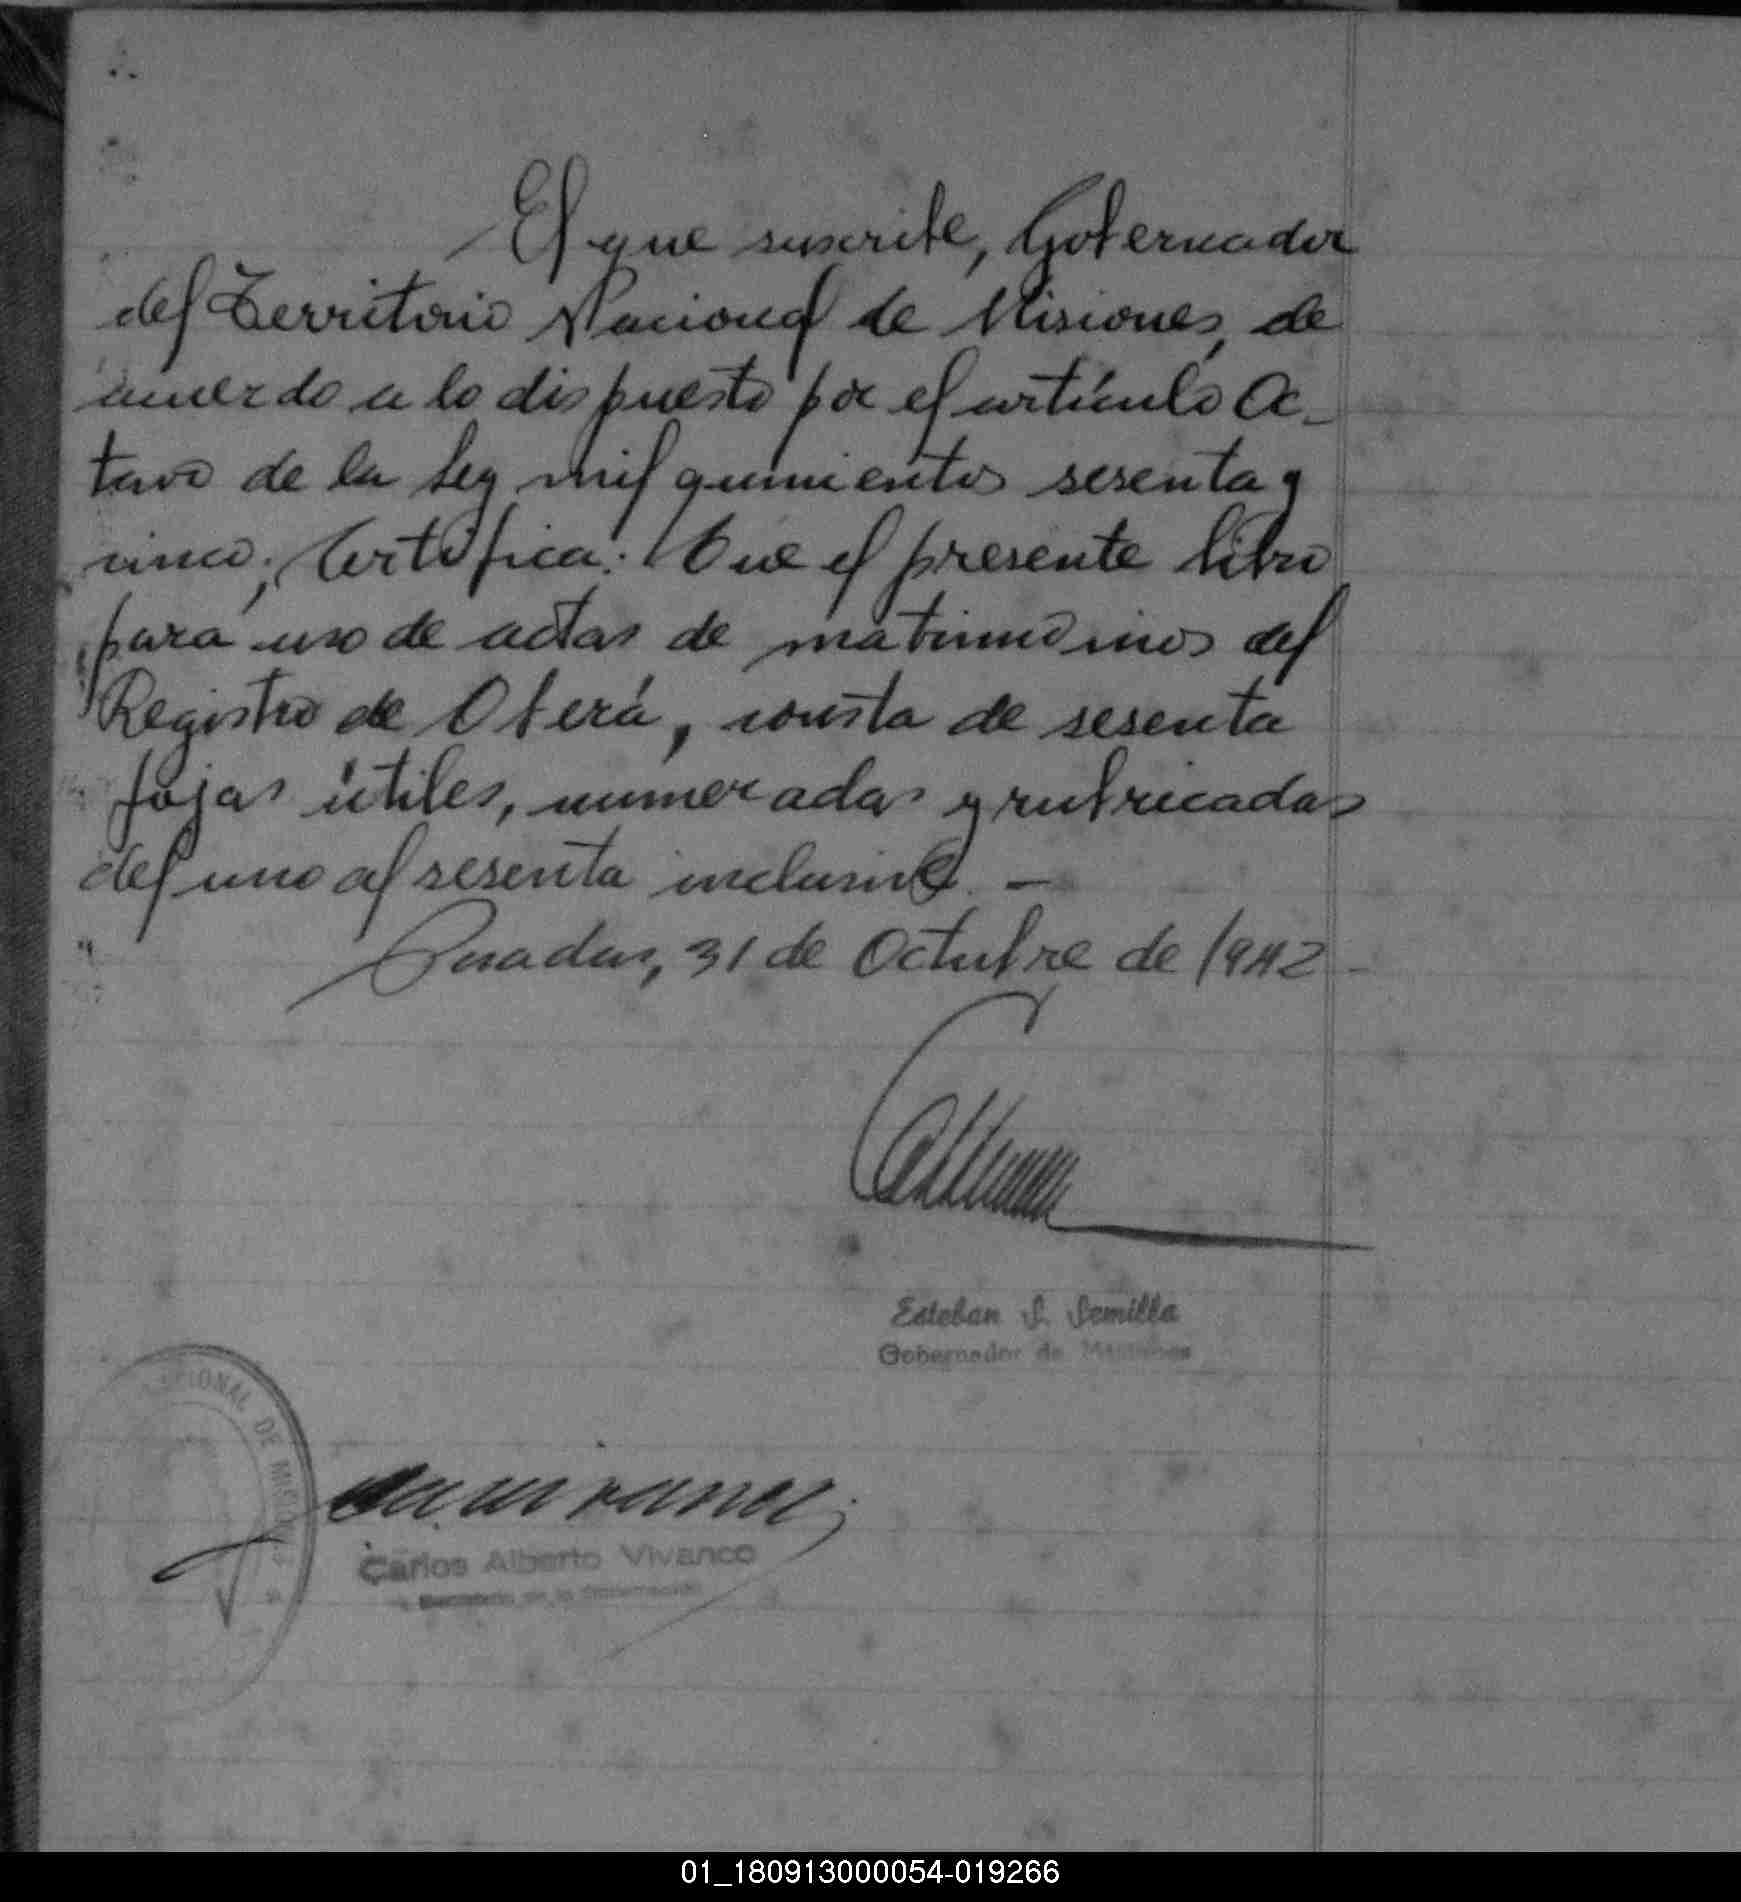 El que suscribe, Gobernador
del Territorio Nacional de Misiones, de
acuerdo a lo dispuesto por el artículo Oc-
tavo de la ley mil quinientos sesenta y
cinco; Certifica: Que el presente libro
para uso de actas de matrimonios del
Registro de Oberá, consta de sesenta
fojas útiles, numeradas y rubricadas
del uno al sesenta inclusive. —
Posadas, 31 de Octubre de 1942 -
Esteban S. Semilla
Gobernador de Misiones
NACIONAL DE MISIONES
Carlos Alberto Vivanco
Secretario de la Gobernación
01_180913000054-019266